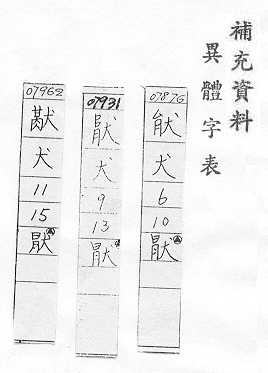 補充資料
異體字表
07876
犬
6
10
猒
07931
犬
9
13
猒
07962
犬
11
15
猒